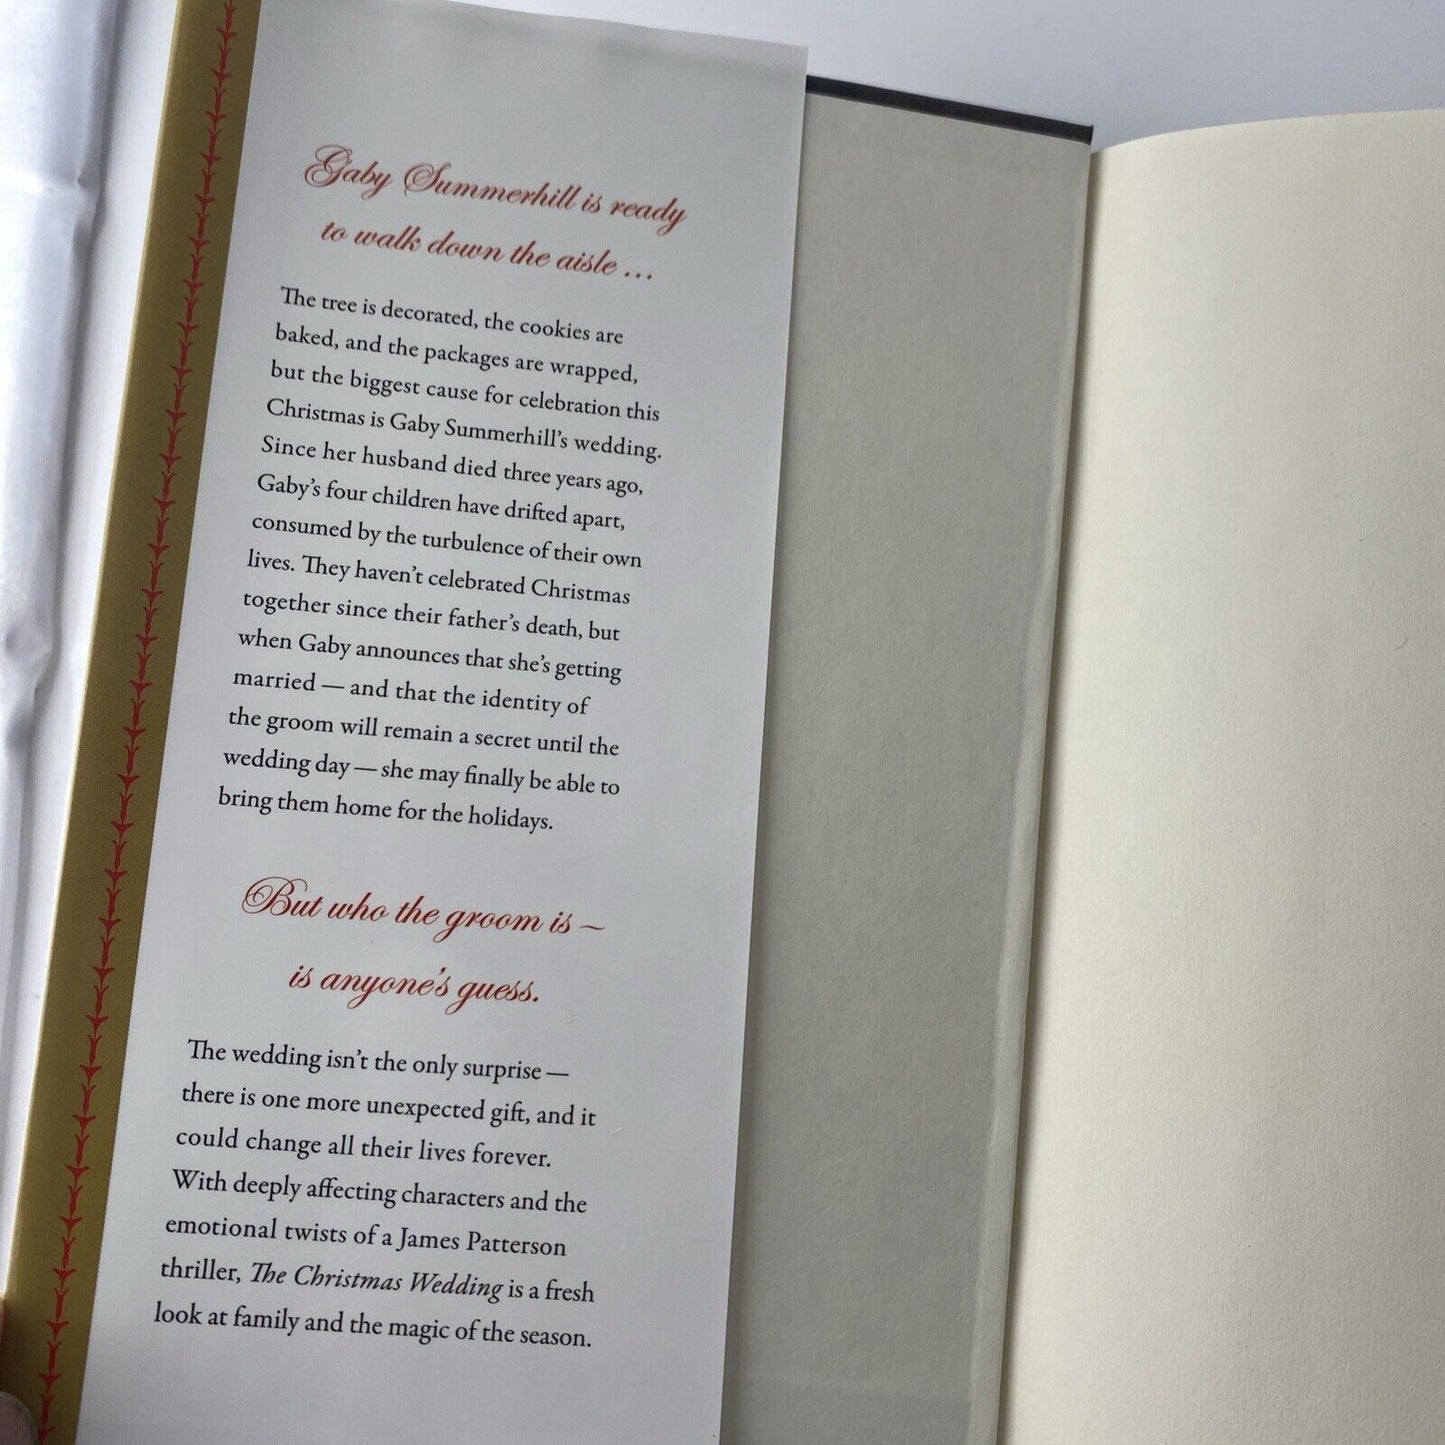 Gaby Summerhill is ready
to walk down the aisle …
The tree is decorated, the cookies are
baked, and the packages are wrapped,
but the biggest cause for celebration this
Christmas is Gaby Summerhill's wedding.
Since her husband died three years ago,
Gaby's four children have drifted apart,
consumed by the turbulence of their own
lives. They haven't celebrated Christmas
together since their father's death, but
when Gaby announces that she's getting
married — and that the identity of
the groom will remain a secret until the
wedding day — she may finally be able to
bring them home for the holidays.
But who the groom is –
is anyone's guess.
The wedding isn't the only surprise —
there is one more unexpected gift, and it
could change all their lives forever.
With deeply affecting characters and the
emotional twists of a James Patterson
thriller, The Christmas Wedding is a fresh
look at family and the magic of the season.